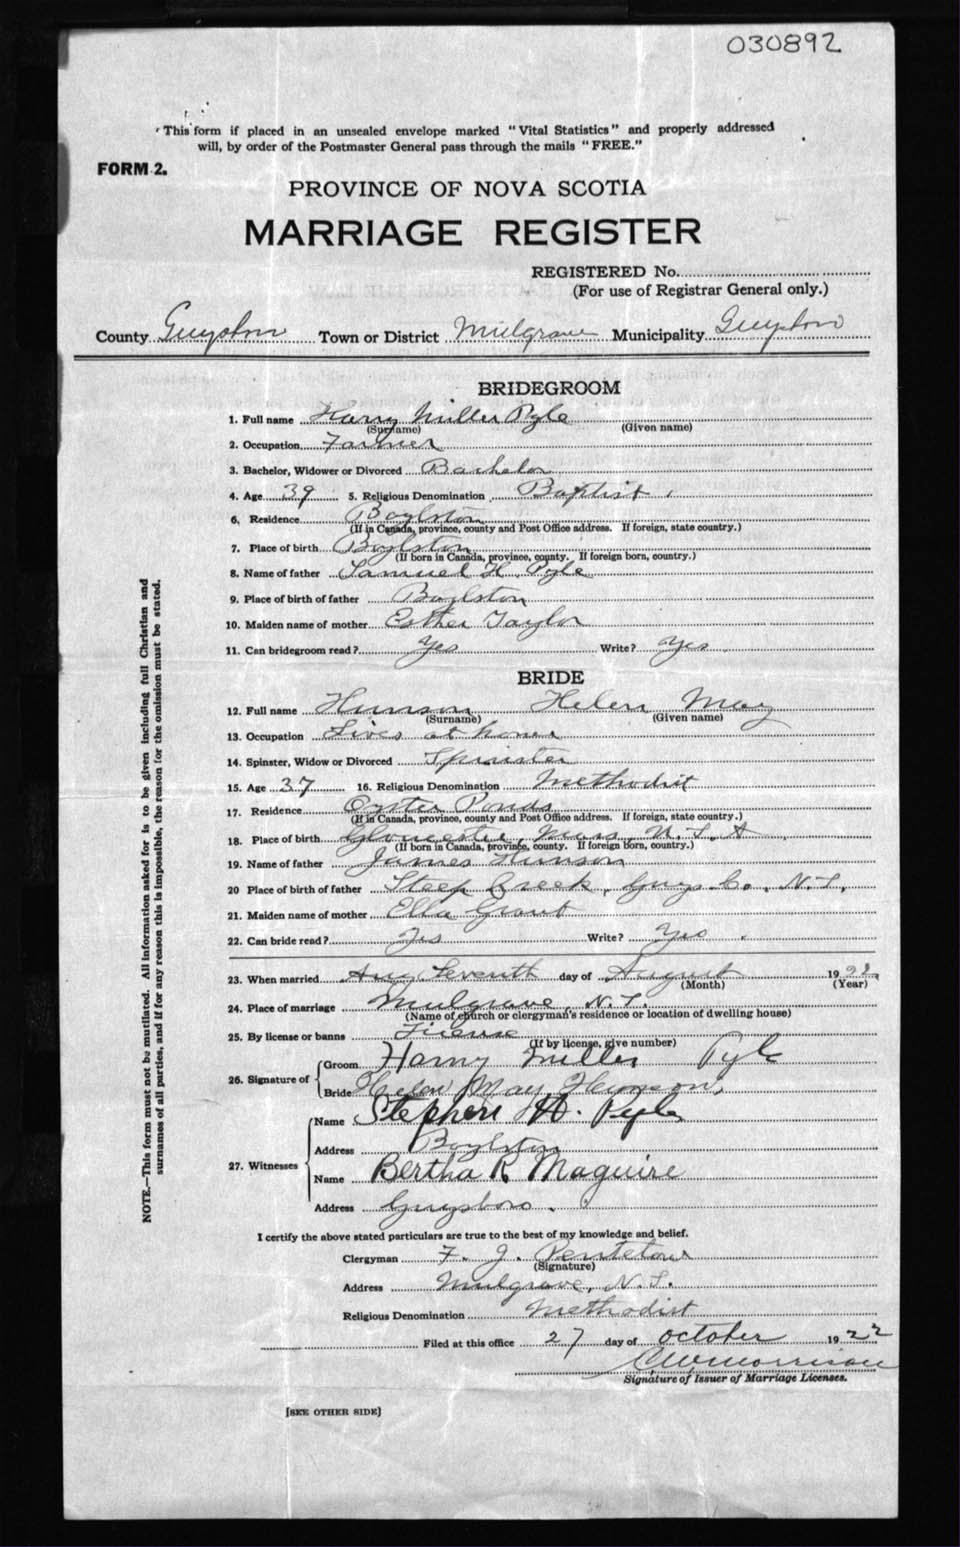 030892
This form if placed in an unsealed envelope marked "Vital Statistics" and properly addressed
will, by order of the Postmaster General pass through the mails "FREE."
FORM 2.
PROVINCE OF NOVA SCOTIA
MARRIAGE REGISTER
REGISTERED No.
(For use of Registrar General only.)
County Guysboro Town or District Mulgrave Municipality Guysboro
BRIDEGROOM
1. Full name Harry Miller Pyle
(Surname) (Given name)
2. Occupation Farmer
3. Bachelor, Widower or Divorced Bachelor
4. Age 39 5. Religious Denomination Baptist
6. Residence Boylston
(If in Canada, province, county and Post Office address. If foreign, state country.)
7. Place of birth Boylston
(If born in Canada, province, county. If foreign born, country.)
8. Name of father Samuel H. Pyle
9. Place of birth of father Boylston
10. Maiden name of mother Esther Taylor
11. Can bridegroom read? Yes Write? Yes
BRIDE
12. Full name Hunson Helen May
(Surname) (Given name)
13. Occupation Lives at home
14. Spinster, Widow or Divorced Spinster
15. Age 37 16. Religious Denomination Methodist
17. Residence Oyster Ponds
(If in Canada, province, county and Post Office address. If foreign, state country.)
18. Place of birth Gloucester, Mass, U.S.A
(If born in Canada, province, county. If foreign born, country.)
19. Name of father James Hunson
20 Place of birth of father Steep Creek, Guys. Co., N.S.
21. Maiden name of mother Ella Grant
22. Can bride read? Yes Write? Yes
23. When married Aug Seventh day of August 1922
(Month) (Year)
24. Place of marriage Mulgrave, N.S.
(Name of church or clergyman's residence or location of dwelling house)
25. By license or banns License
(If by license, give number)
26. Signature of
Groom Harry Miller Pyle
Bride Helen May Hunson
27. Witnesses
Name Stephen A. Pyle
Address Boylston
Name Bertha R Maguire
Address Guysboro.
I certify the above stated particulars are true to the best of my knowledge and belief.
Clergyman F. J. Pentelow
(Signature)
Address Mulgrave, N.S.
Religious Denomination Methodist
Filed at this office 27 day of October 1922
C W Morrison
Signature of Issuer of Marriage Licenses.
[SEE OTHER SIDE]
NOTE.—This form must not be mutilated. All information asked for is to be given including full Christian and
surnames of all parties, and if for any reason this is impossible, the reason for the omission must be stated.